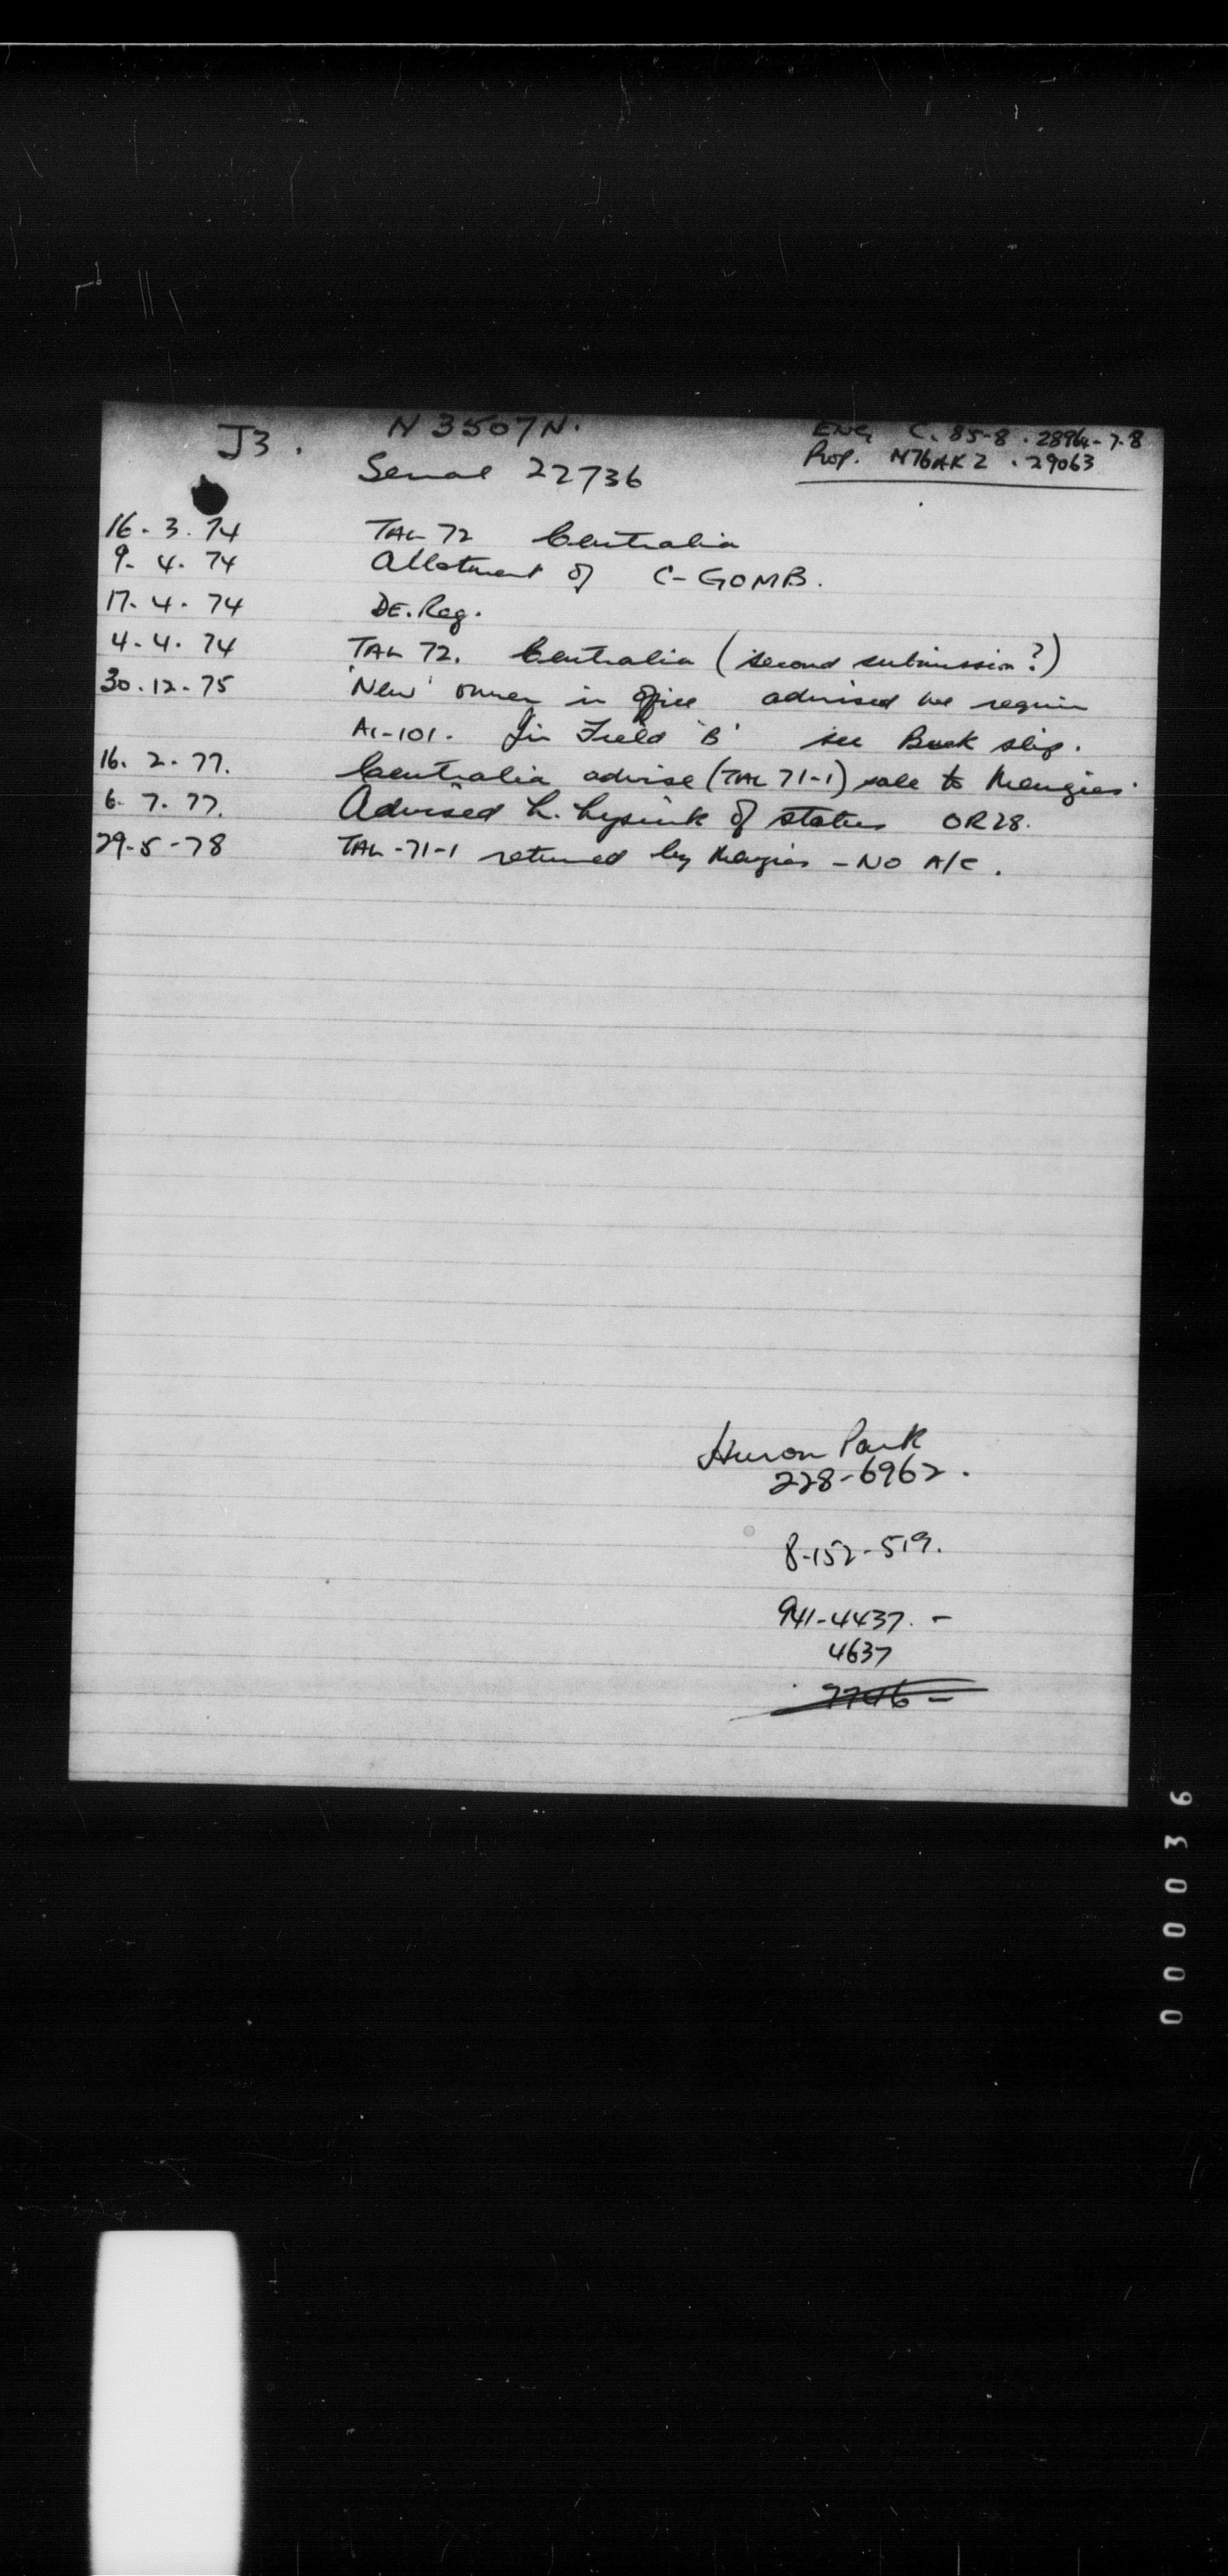 J3.
N 3507N.
Serial 22736
ENG C. 85-8 . 2896-7-8
Prop. M76AK2 . 29063
16-3.74 TAL 72 Centralia
9-4.74 Allotment of C-GOMB.
17-4-74 DE.Reg.
4-4-74 TAL 72. Centralia (second submission?)
30.12-75 'New' owner in office advised we require
AI-101. in Field 'B' see Buck slip.
16.2-77. Centralia advise (TAL 71-1) sale to
6-7.77. Advised L. of status OR28.
29-5-78 TAL-71-1 returned by - NO A/C.
Huron Park
228-6962.
8-152-519.
941-4437. -
4637
7746 -
000036